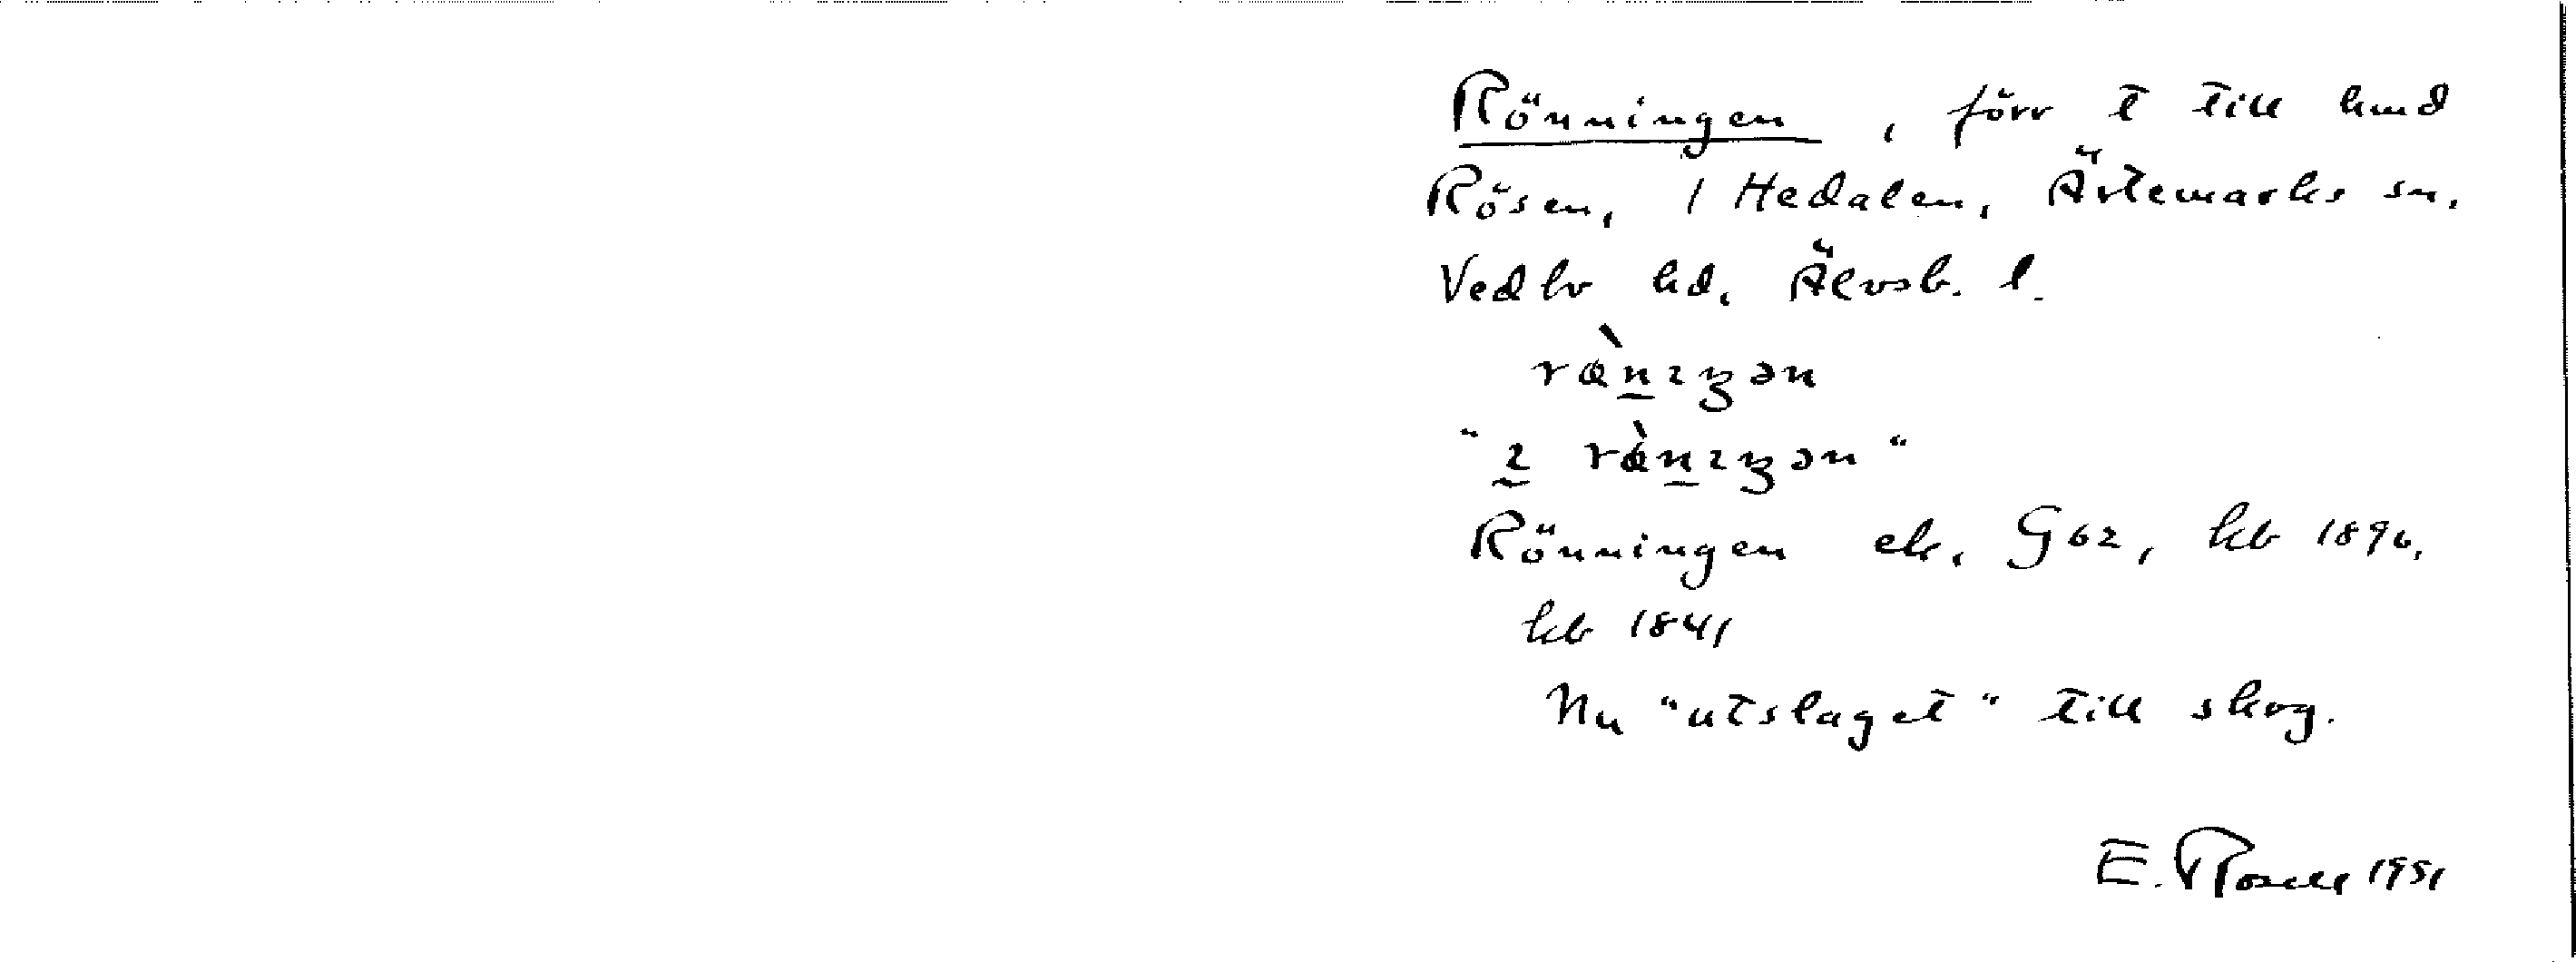 Rönningen, förr t till hmd
Rösen, 1 Hedalen, Ärtemarks sn,
Vedbo hd, Älvsb. l.
rø̀nıŋən
"ı rø̀nıŋən"
Rönningen ek, G62, kb 1890,
kb 1841
Nu "utslaget" till skog.
E. Rosell 1951